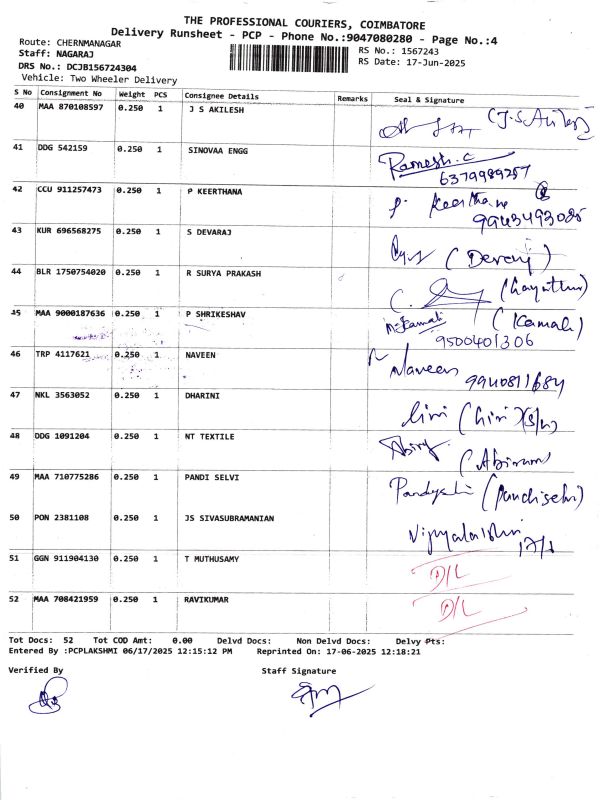 THE PROFESSIONAL COURIERS, COIMBATORE
Delivery Runsheet - PCP - Phone No.:9047080280 - Page No.:4
Route: CHERNMANAGAR
Staff: NAGARAJ
RS No.: 1567243
DRS No.: DCJB156724304
RS Date: 17-Jun-2025
Vehicle: Two Wheeler Delivery
S No Consignment No Weight PCS Consignee Details Remarks Seal & Signature
40 MAA 870108597 0.250 1 J S AKILESH
41 DDG 542159 0.250 1 SINOVAA ENGG Ramesh.c
6379989257
42 CCU 911257473 0.250 1 P KEERTHANA P. Keerthana
9943493085
43 KUR 696568275 0.250 1 S DEVARAJ (Devraj)
44 BLR 1750754020 0.250 1 R SURYA PRAKASH
45 MAA 9000187636 0.250 1 P SHRIKESHAV (Kamali)
9500401306
46 TRP 4117621 0.250 1 NAVEEN Naveen
9940811684
47 NKL 3563052 0.250 1 DHARINI
48 DDG 1091204 0.250 1 NT TEXTILE
49 MAA 710775286 0.250 1 PANDI SELVI (pandiselvi)
50 PON 2381108 0.250 1 JS SIVASUBRAMANIAN
51 GGN 911904130 0.250 1 T MUTHUSAMY D/L
52 MAA 708421959 0.250 1 RAVIKUMAR D/L
Tot Docs: 52 Tot COD Amt: 0.00 Delvd Docs: Non Delvd Docs: Delvy Pts:
Entered By :PCPLAKSHMI 06/17/2025 12:15:12 PM Reprinted On: 17-06-2025 12:18:21
Verified By Staff Signature